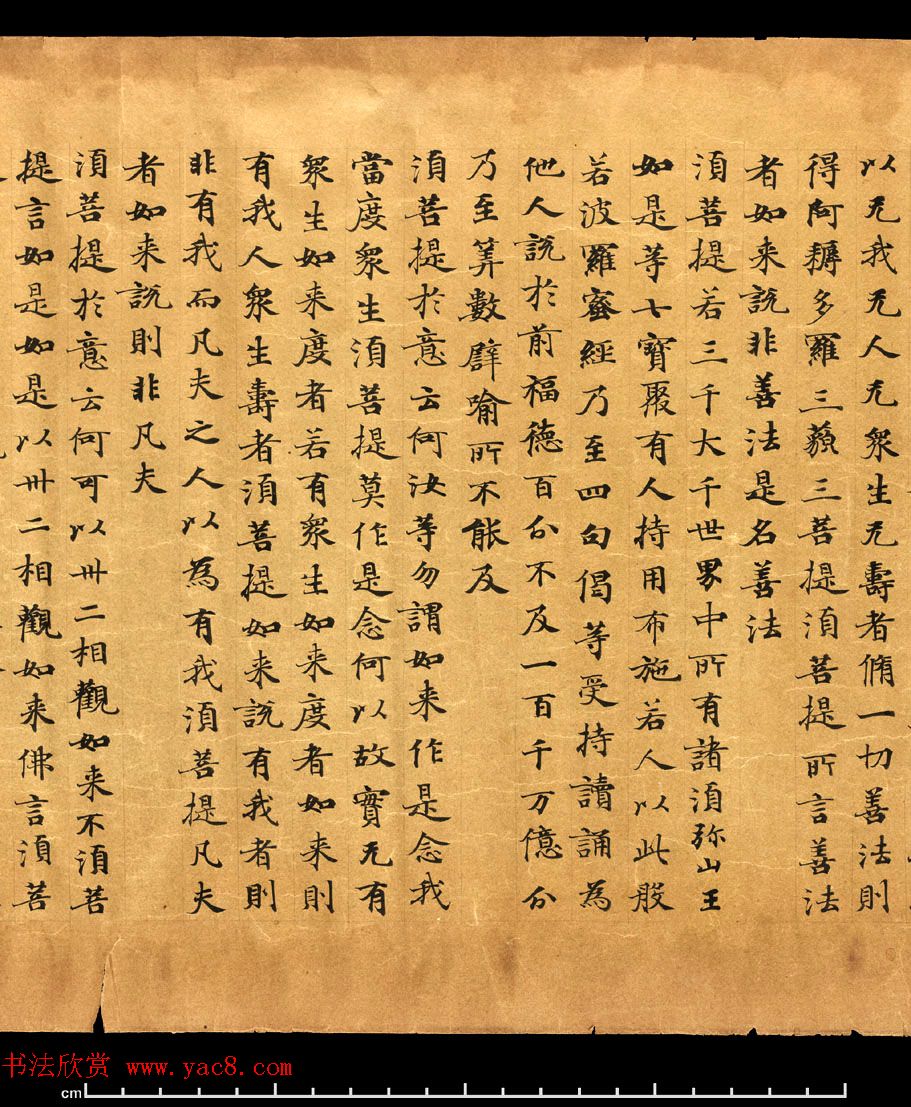 以无我无人无衆生无壽者脩一切善法則
得阿耨多羅三藐三菩提須菩提所言善法
者如来說非善法是名善法
須菩提若三千大千世界中所有諸須弥山王
如是等七寶聚有人持用布施若人以此般
若波羅蜜經乃至四句偈等受持讀誦為
他人說於前福德百分不及一百千万億分
乃至筭數譬喻所不能及
須菩提於意云何汝等勿謂如来作是念我
當度衆生須菩提莫作是念何以故實无有
衆生如来度者若有衆生如来度者如来則
有我人衆生壽者須菩提如来說有我者則
非有我而凡夫之人以為有我須菩提凡夫
者如来說則非凡夫
須菩提於意云何可以卅二相觀如来不須菩
提言如是如是以卅二相觀如来佛言須菩
书法欣赏 www.yac8.com
cm